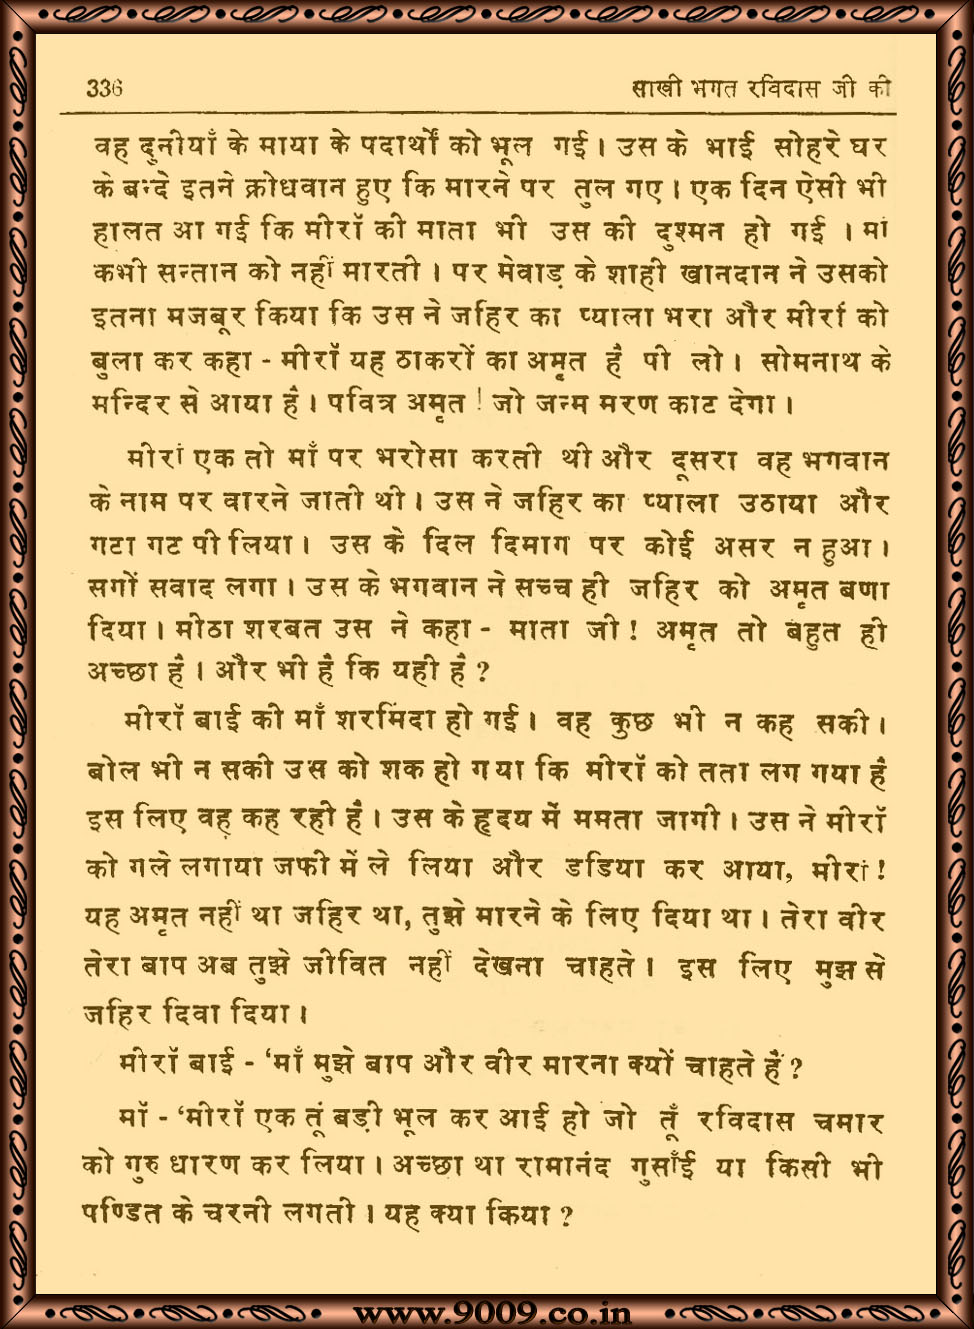 336 साखी भगत रविदास जी की
वह दुनीयाँ के माया के पदार्थों को भूल गई । उस के भाई सोहरे घर
के बन्दे इतने क्रोधवान हुए कि मारने पर तुल गए । एक दिन ऐसी भी
हालत आ गई कि मीरॉ की माता भी उस की दुश्मन हो गई । मां
कभी सन्तान को नहीं मारती । पर मेवाड़ के शाही खानदान ने उसको
इतना मजबूर किया कि उस ने जहिर का प्याला भरा और मीरां को
बुला कर कहा - मीरॉ यह ठाकरों का अमृत हैं पी लो । सोमनाथ के
मन्दिर से आया है । पवित्र अमृत ! जो जन्म मरण काट देगा ।
मीरां एक तो माँ पर भरोसा करती थी और दूसरा वह भगवान
के नाम पर वारने जाती थी । उस ने जहिर का प्याला उठाया और
गटा गट पी लिया । उस के दिल दिमाग पर कोई असर न हुआ ।
सगों सवाद लगा । उस के भगवान ने सच्च ही जहिर को अमृत बणा
दिया । मीठा शरबत उस ने कहा - माता जी ! अमृत तो बहुत ही
अच्छा है । और भी है कि यही है ?
मीरॉ बाई की माँ शरमिंदा हो गई । वह कुछ भी न कह सकी ।
बोल भी न सकी उस को शक हो गया कि मीरॉ को तता लग गया है
इस लिए वह कह रही है । उस के हृदय में ममता जागी । उस ने मीरॉ
को गले लगाया जफी में ले लिया और डडिया कर आया, मीरां !
यह अमृत नहीं था जहिर था, तुझे मारने के लिए दिया था । तेरा वीर
तेरा बाप अब तुझे जीवित नहीं देखना चाहते । इस लिए मुझ से
जहिर दिवा दिया ।
मीरॉ बाई - ‘माँ मुझे बाप और वीर मारना क्यों चाहते हैं ?
मॉ - ‘मीरॉ एक तूं बड़ी भूल कर आई हो जो तूँ रविदास चमार
को गुरु धारण कर लिया । अच्छा था रामानंद गुसाँई या किसी भी
पण्डित के चरनी लगती । यह क्या किया ?
www.9009.co.in